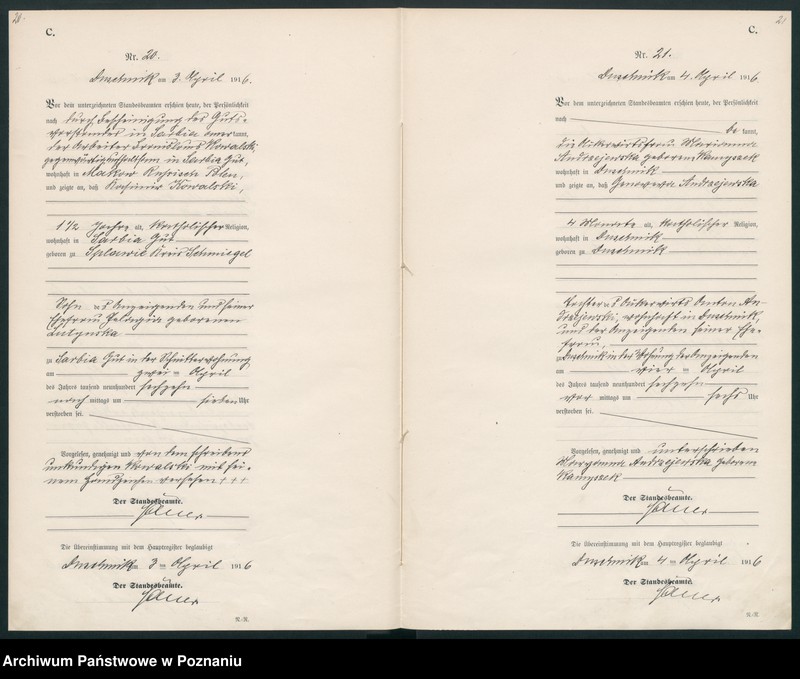 20.
C.
Nr. 20.
am 3. April 1916.
Vor dem unterzeichneten Standesbeamten erschien heute, der Persönlichkeit
nach durch Bescheinigung des Guts-
vorstandes in Sarbia
der Arbeiter Kowalski,
in Sarbia Gut,
wohnhaft in Makow Russisch Polen,
und zeigte an, daß Kasimir Kowalski,
1 1/2 Jahre alt, katholischer Religion,
wohnhaft in Sarbia Gut
geboren zu Kreis Schmiegel
Sohn des Anzeigenden und seiner
Ehefrau geborenen
zu Sarbia Gut in der Schnitterwohnung
am zwei ten April
des Jahres tausend neunhundert sechzehn
nach mittags um sieben Uhr
verstorben sei.
Vorgelesen, genehmigt und von dem schreibens
unkundigen Kowalski mit sei-
nem Handzeichen versehen +++
Der Standesbeamte.
Die Übereinstimmung mit dem Hauptregister beglaubigt
am 3 ten April 1916
Der Standesbeamte.
R.-R.
21
C.
Nr. 21.
am 4. April 1916
Vor dem unterzeichneten Standesbeamten erschien heute, der Persönlichkeit
nach
be kannt,
die Ackerwirtsfrau Marianna
Andrzejewska geborene
wohnhaft in
und zeigte an, daß Genowewa Andrzejewska
4 Monate alt, katholischer Religion,
wohnhaft in
geboren zu
Tochter des Ackerwirts Anton An-
drzejewski, wohnhaft in
und der Anzeigenden seiner Ehe-
frau,
zu in der Wohnung der Anzeigenden
am vier ten April
des Jahres tausend neunhundert sechzehn
vor mittags um sechs Uhr
verstorben sei.
Vorgelesen, genehmigt und unterschrieben
Andrzejewska geborene
Der Standesbeamte.
Die Übereinstimmung mit dem Hauptregister beglaubigt
am 4 ten April 1916
Der Standesbeamte.
R.-R.
Archiwum Państwowe w Poznaniu